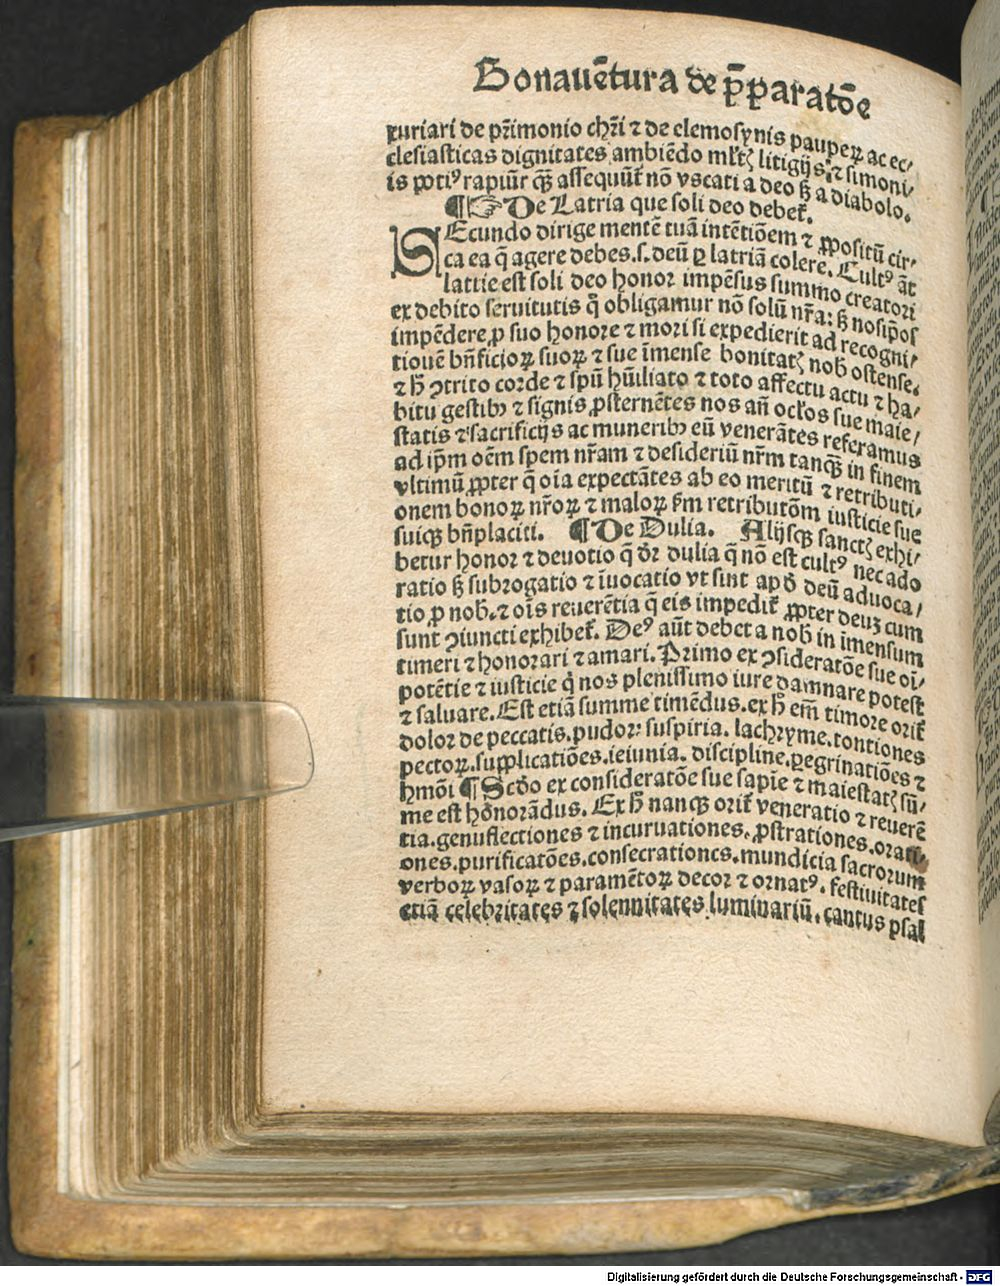 Bonauētura de p̄paratōe
xuriari de pr̄imonio chr̄i ⁊ de elemosynis pauperꝝ ac ec⸗
clesiasticas dignitates ambiēdo ml̄tꝭ litigijs ⁊ simoni⸗
is poti⁹ rapiūr qꝫ assequūt̄ nō vocati a deo ꝫ a diabolo.
¶☞ De Latria que soli deo debet̄.
SEcundo dirige mentē tuā intētiōem ⁊ ꝓpositū cir⸗
ca ea q̄ agere debes.s. deū ꝑ latriā colere. Cult⁹ āt
latrie est soli deo honor impēsus summo creatori
ex debito seruitutis q̊ obligamur nō solū nr̄a: ꝫ nosip̄os
impēdere ꝓ suo honore ⁊ mori si expedierit ad recogni⸗
tionē bn̄ficioꝝ suoꝝ ⁊ sue īmense bonitatꝭ nob̄ ostense.
⁊ h̄ ꝯtrito corde ⁊ spū hūiliato ⁊ toto affectu actu ⁊ ha⸗
bitu gestibꝫ ⁊ signis ꝓsternētes nos an̄ ocl̄os sue maie⸗
statis ⁊ sacrificijs ac muneribꝫ eū venerātes referamus
ad ip̄m oēm spem nr̄am ⁊ desideriū nr̄m tanqꝫ in finem
vltimū ꝓpter q̄ oīa expectātes ab eo meritū ⁊ retributi⸗
onem bonoꝝ nr̄oꝝ ⁊ maloꝝ ẜm retributōm iusticie sue
suiqꝫ bn̄placiti. ¶De Dulia. Alijsqꝫ sanctꝭ exhi⸗
betur honor ⁊ deuotio q̄ dr̄ dulia q̄ nō est cult⁹ nec ado
ratio ꝫ subrogatio ⁊ īuocatio vt sint apð deū aduoca⸗
tio ꝓ nob̄. ⁊ oīs reuerētia q̄ eis impedit̄ ꝓpter deuꝫ cum
sunt ꝯiuncti exhibet̄. De⁹ aūt debet a nob̄ in īmensum
timeri ⁊ honorari ⁊ amari. Primo ex ꝯsideratōe sue oī⸗
potētie ⁊ iusticie q̊ nos plenissimo iure damnare potest
⁊ saluare. Est etiā summe timēdus. ex h̄ em̄ timore orit̄
dolor de peccatis. pudor: suspiria. lachryme. tontiones
pectoꝝ. supplicatiōes. ieiunia. discipline. ꝑegrinatiōes ⁊
hmōi ¶Scðo ex consideratōe sue sapiē ⁊ maiestatꝭ sū⸗
me est honorādus. Ex h̄ nanqꝫ orit̄ veneratio ⁊ reuerē
tia. genuflectiones ⁊ incuruationes. ꝓstrationes. orati⸗
ones. purificatōes. consecrationes. mundicia sacrorum
verboꝝ vasoꝝ ⁊ paramētoꝝ decor ⁊ ornat⁹. festiuitates
etiā celebritates ⁊ solennitates luminariū. cantus psal
Digitalisierung gefördert durch die Deutsche Forschungsgemeinschaft - DFG